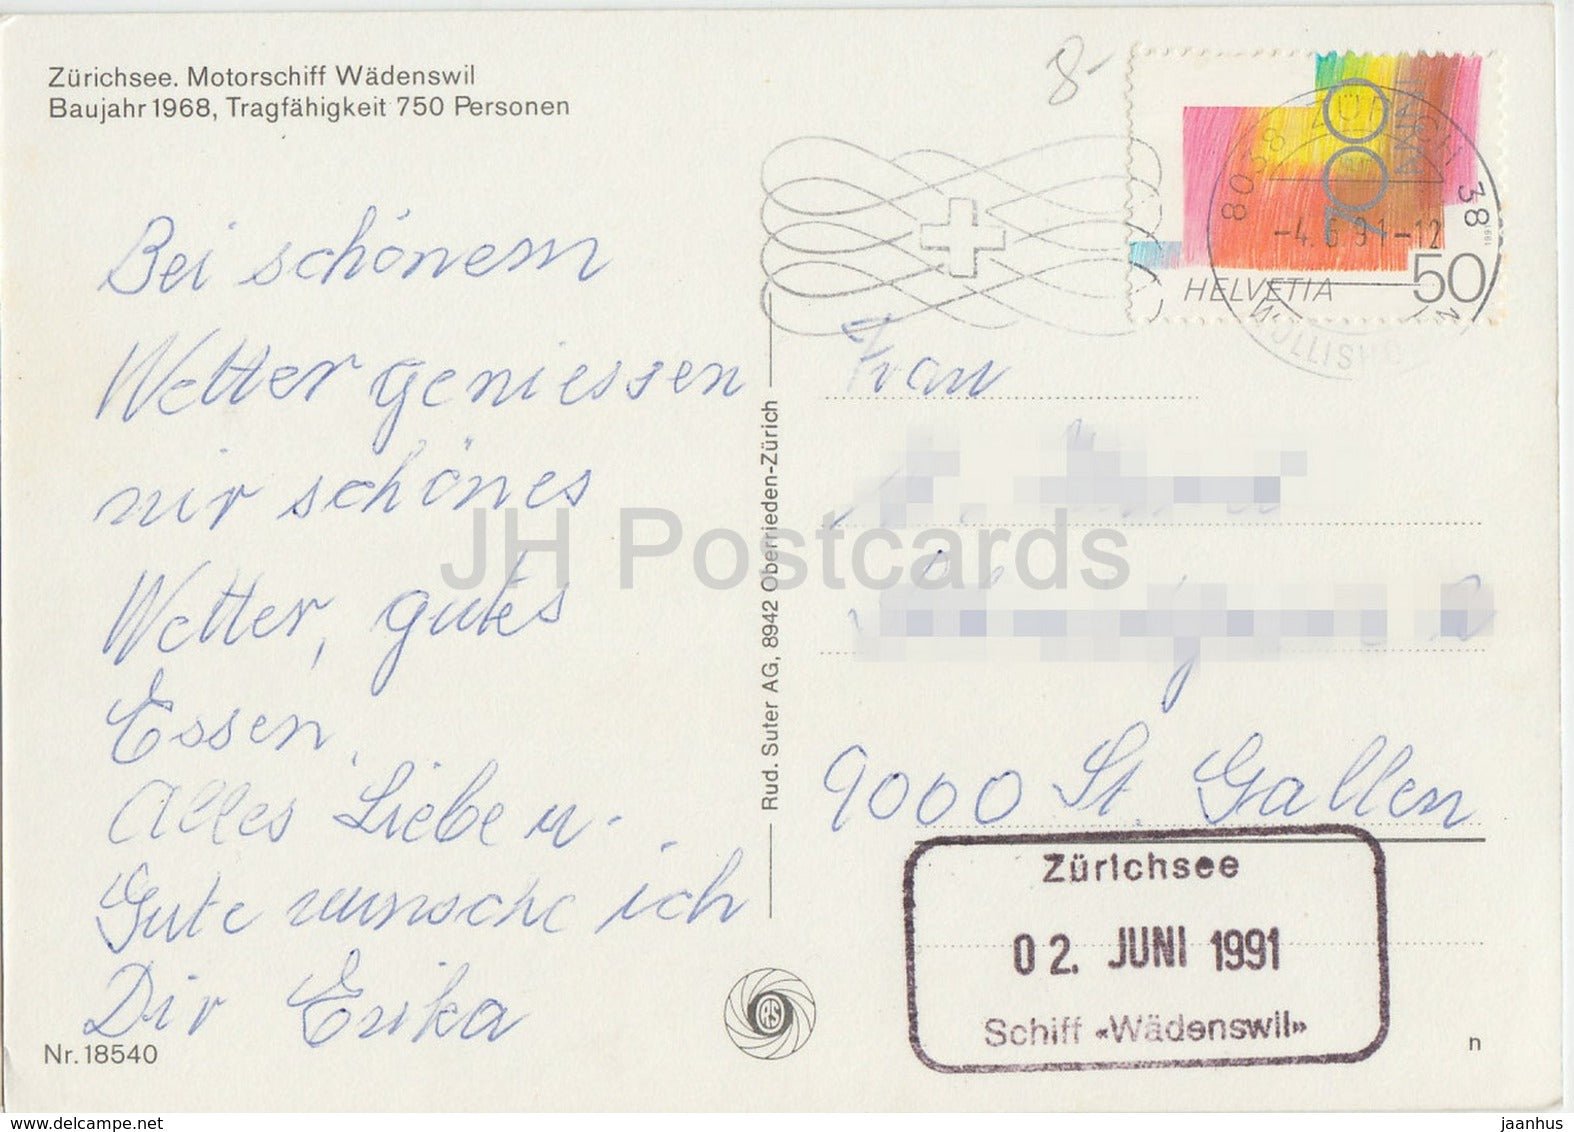 Zürichsee. Motorschiff Wädenswil
Baujahr 1968, Tragfähigkeit 750 Personen
8-
700
ANNI
8038 ZÜRICH 38
-4.6.91-12
1991
HELVETIA
50
Bei schönem
Wetter geniessen
wir schönes
Wetter, gutes
Essen.
Alles Liebe u.
Gute wünsche ich
Dir Erika
Nr. 18540
Rud. Suter AG, 8942 Oberrieden-Zürich
RS
Frau
9000 St. Gallen
Zürichsee
02. JUNI 1991
Schiff «Wädenswil»
n
JH Postcards
delcampe.net
jaanhus